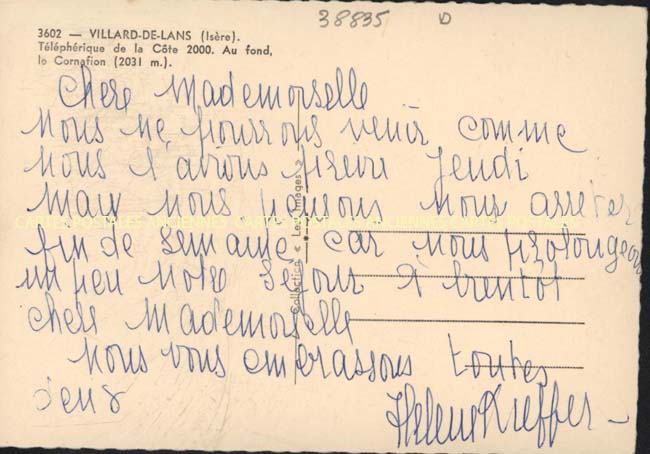 38835 D
3602 — VILLARD-DE-LANS (Isère).
Téléphérique de la Côte 2000. Au fond,
le Cornafion (2031 m.).
Chere Mademoiselle
Nous ne pourrons venir comme
nous l'avions prévu Jeudi
mais nous pensons nous arreter
fin de semaine car nous prolongeons
un peu notre séjour à bientôt
chere Mademoiselle
Nous vous embrassons toutes
deux
Helene Kieffer
Collection « Les Images »